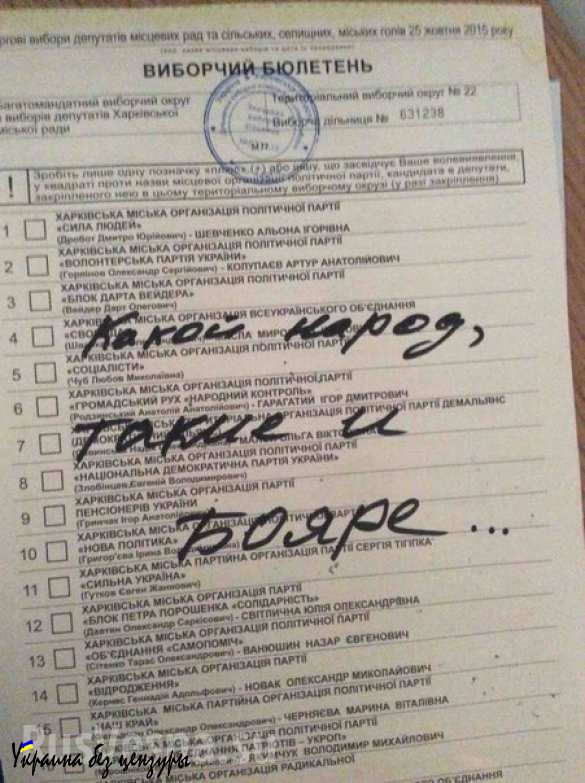 чергові вибори депутатів місцевих рад та сільських, селищних, міських голів 25 жовтня 2015 року
ВИБОРЧИЙ БЮЛЕТЕНЬ
Багатомандатний виборчий округ
з виборів депутатів Харківської
міської ради
Територіальний виборчий округ № 22
Виборча дільниця № 631238
МП
! Зробіть лише одну позначку «плюс» (+) або іншу, що засвідчує Ваше волевиявлення,
у квадраті проти назви місцевої організації політичної партії, кандидата в депутати,
закріпленого нею в цьому територіальному виборчому окрузі (у разі закріплення)
1 ХАРКІВСЬКА МІСЬКА ОРГАНІЗАЦІЯ ПОЛІТИЧНОЇ ПАРТІЇ
«СИЛА ЛЮДЕЙ»
(Дробот Дмитро Юрійович) - ШЕВЧЕНКО АЛЬОНА ІГОРІВНА
2 ХАРКІВСЬКА МІСЬКА ОРГАНІЗАЦІЯ ПОЛІТИЧНОЇ ПАРТІЇ
«ВОЛОНТЕРСЬКА ПАРТІЯ УКРАЇНИ»
(Горяінов Олександр Сергійович) - КОЛУПАЄВ АРТУР АНАТОЛІЙОВИЧ
3 ХАРКІВСЬКА МІСЬКА ОРГАНІЗАЦІЯ ПОЛІТИЧНОЇ ПАРТІЇ
«БЛОК ДАРТА ВЕЙДЕРА»
(Вейдер Дарт Олегович)
4 ХАРКІВСЬКА МІСЬКА ОРГАНІЗАЦІЯ ВСЕУКРАЇНСЬКОГО ОБ'ЄДНАННЯ
Какой народ,
5 ХАРКІВСЬКА МІСЬКА ОРГАНІЗАЦІЯ ПОЛІТИЧНОЇ ПАРТІЇ
«СОЦІАЛІСТИ»
(Чуб Любов Миколаївна)
6 ХАРКІВСЬКА МІСЬКА ОРГАНІЗАЦІЯ ПОЛІТИЧНОЇ ПАРТІЇ
«ГРОМАДСЬКИЙ РУХ «НАРОДНИЙ КОНТРОЛЬ»
(Родзинський Анатолій Анатолійович) - ГАРАГАТИЙ ІГОР ДМИТРОВИЧ
7 ОРГАНІЗАЦІЯ ПОЛІТИЧНОЇ ПАРТІЇ ДЕМАЛЬЯНС
такие и
8 ХАРКІВСЬКА МІСЬКА ОРГАНІЗАЦІЯ ПОЛІТИЧНОЇ ПАРТІЇ
«НАЦІОНАЛЬНА ДЕМОКРАТИЧНА ПАРТІЯ УКРАЇНИ»
(Злобінцев Євгеній Володимирович)
9 ХАРКІВСЬКА МІСЬКА ОРГАНІЗАЦІЯ ПАРТІЇ
ПЕНСІОНЕРІВ УКРАЇНИ
Бояре...
10 ХАРКІВСЬКА МІСЬКА ОРГАНІЗАЦІЯ
«НОВА ПОЛІТИКА»
(Григор'єва Ірина
11 ХАРКІВСЬКА МІСЬКА ПАРТІЙНА ОРГАНІЗАЦІЯ ПАРТІЇ СЕРГІЯ ТІГІПКА
«СИЛЬНА УКРАЇНА»
(Гутков Євген Жанович)
12 ХАРКІВСЬКА МІСЬКА ОРГАНІЗАЦІЯ ПАРТІЇ
«БЛОК ПЕТРА ПОРОШЕНКА «СОЛІДАРНІСТЬ»
(Давтян Олександр Саркісович) - СВІТЛИЧНА ЮЛІЯ ОЛЕКСАНДРІВНА
13 ХАРКІВСЬКА МІСЬКА ОРГАНІЗАЦІЯ ПОЛІТИЧНОЇ ПАРТІЇ
«ОБ'ЄДНАННЯ «САМОПОМІЧ»
(Сітенко Тарас Олександрович) - ВАНЮШИН НАЗАР ЄВГЕНОВИЧ
14 ХАРКІВСЬКА МІСЬКА ОРГАНІЗАЦІЯ ПАРТІЇ
«ВІДРОДЖЕННЯ»
(Кернес Геннадій Адольфович) - НОВАК ОЛЕКСАНДР МИКОЛАЙОВИЧ
15 ХАРКІВСЬКА МІСЬКА ПАРТІЙНА ОРГАНІЗАЦІЯ ПОЛІТИЧНОЇ ПАРТІЇ
«НАШ КРАЙ»
Олександр Олександрович) - ЧЕРНЯЄВА МАРИНА ВІТАЛІЇВНА
ПАТРІОТІВ - УКРОП»
ВОЛОДИМИР МИХАЙЛОВИЧ
ОРГАНІЗАЦІЯ РАДИКАЛЬНОЇ
Украина без цензуры